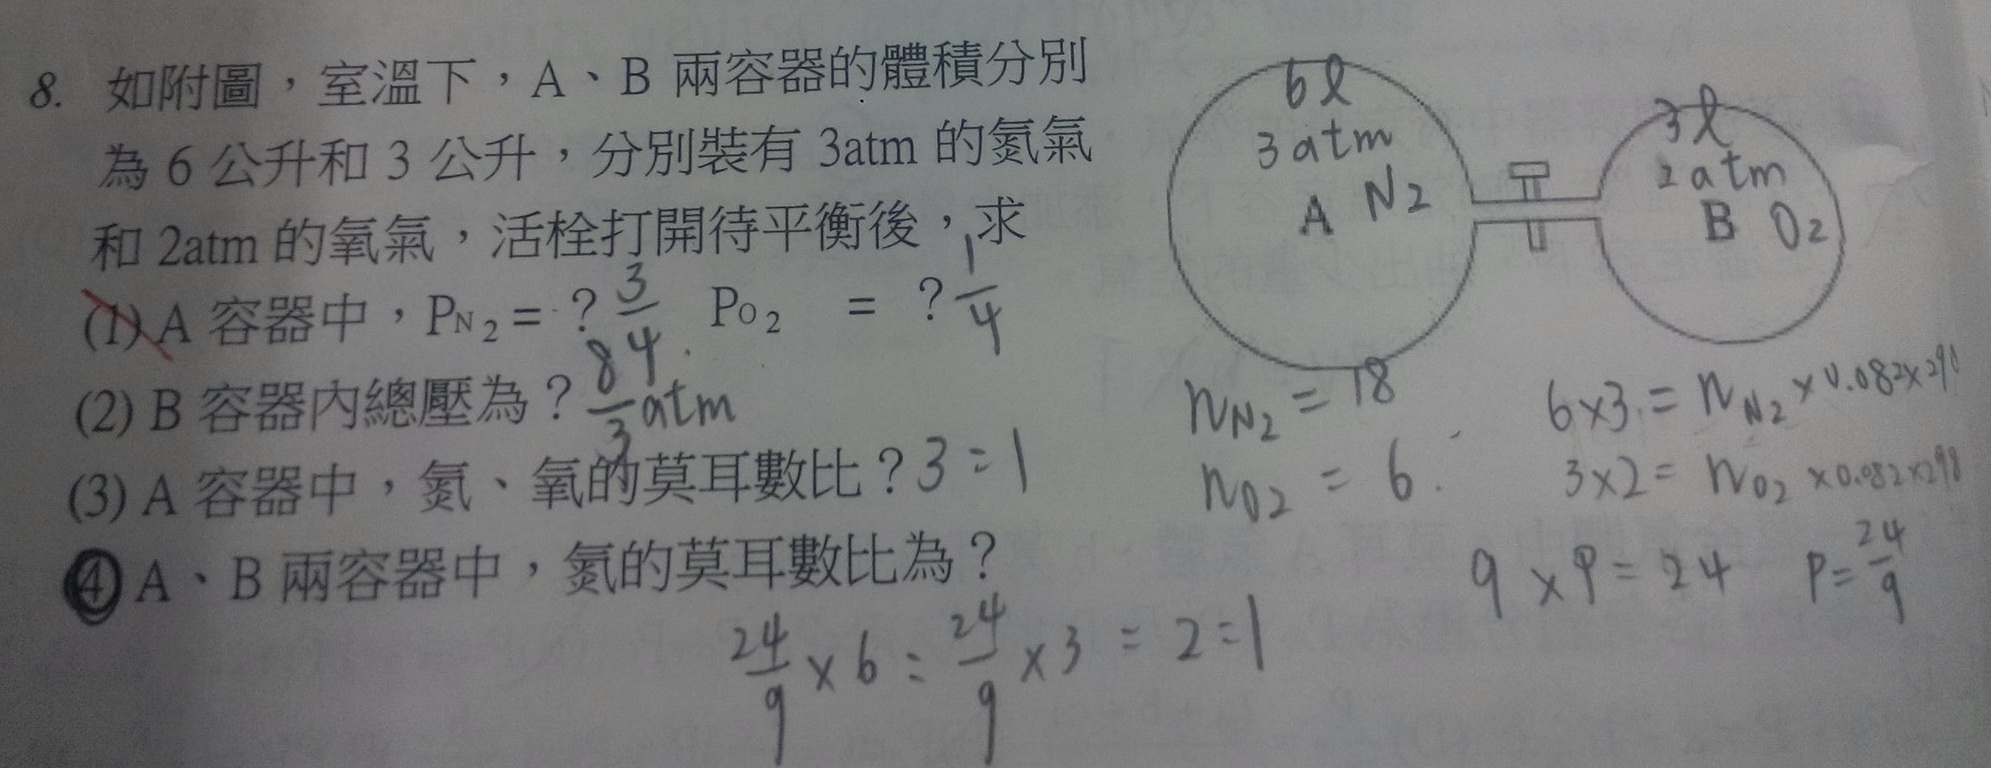 8. 如附圖，室溫下，A、B 兩容器的體積分別
為 6 公升和 3 公升，分別裝有 3atm 的氮氣
和 2atm 的氧氣，活栓打開待平衡後，求
(1) A 容器中，PN2 = ? 3/4 PO2 = ? 1/4
(2) B 容器內總壓為？ 8/3 atm
(3) A 容器中，氮、氧的莫耳數比？3:1
(4) A、B 兩容器中，氮的莫耳數比為？
24/9 × 6 : 24/9 × 3 = 2:1
6ℓ
3atm
A N2
3ℓ
2atm
B O2
nN2 = 18
nO2 = 6
6×3 = nN2 × 0.082×298
3×2 = nO2 × 0.082×298
9 × P = 24 P = 24/9